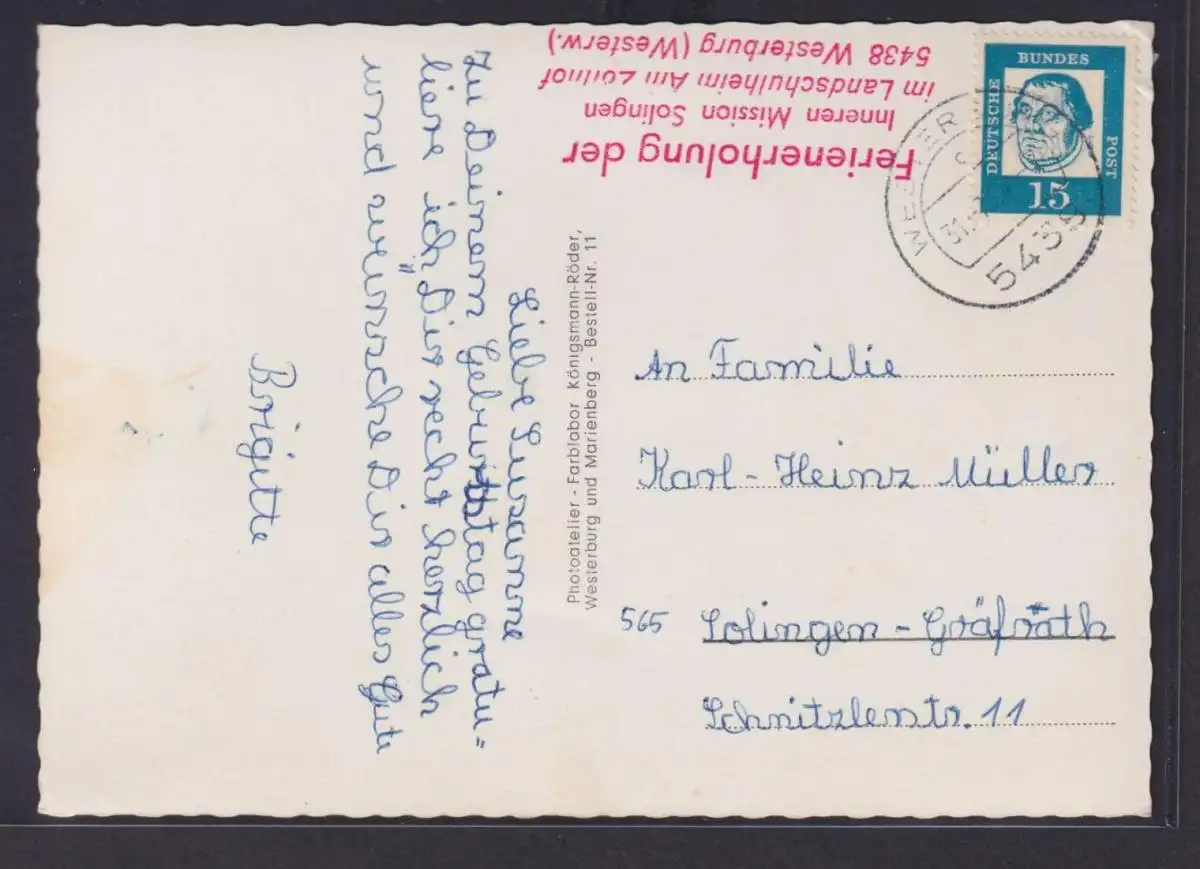 Ferienerholung der
Inneren Mission Solingen
im Landschulheim Am
5438 Westerburg (Westerw.)
DEUTSCHE
BUNDES
POST
15
5439
Liebe Susanne
Zu Deinem Geburtstag gratu=
liere ich Dir recht herzlich
und wünsche Dir alles Gute
Brigitte
Photoatelier - Farblabor Königsmann-Röder,
Westerburg und Marienberg - Bestell-Nr. 11
An Familie
Karl-Heinz Müller
565 Solingen-Gräfrath
Schnitzlerstr. 11